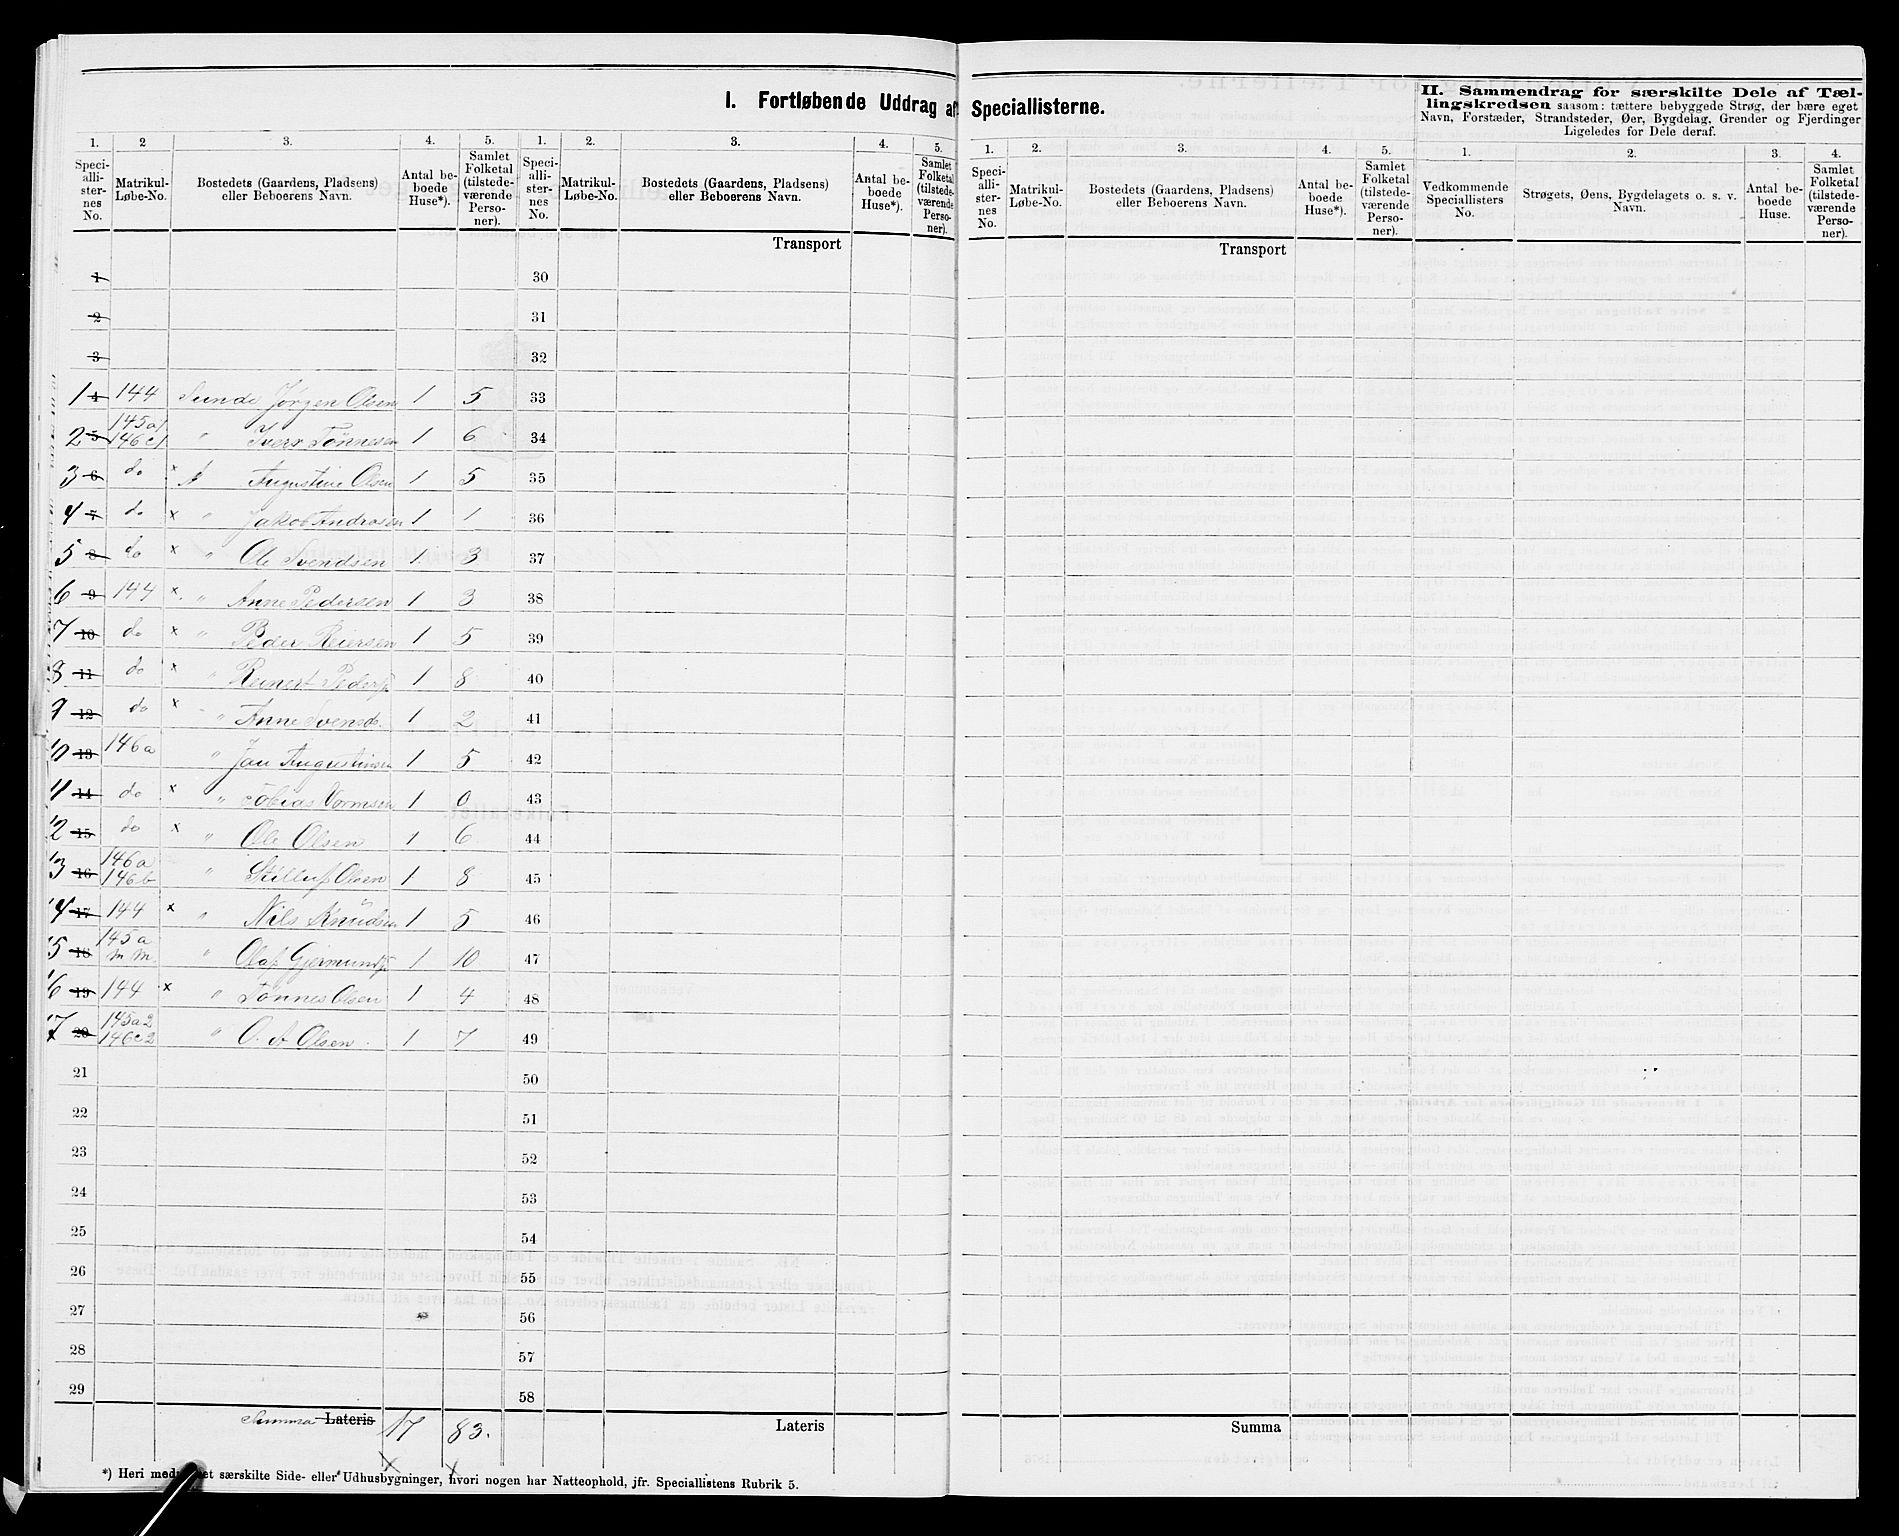 I. Fortløbende Uddrag af Speciallisterne.
1. 2 3. 4. 5.
Speciallisternes No. Matrikul-Løbe-No. Bostedets (Gaardens, Pladsens) eller Beboerens Navn. Antal beboede Huse*). Samlet Folketal (tilstedeværende Personer).
1
2
3
1 4 144 Sunde Jørgen Olsen 1 5
2 5 145a1 146c1 " Iver Tönnesen 1 6
3 6 do x A Augustine Olsen 1 5
4 7 do x " Jakob Andrasen 1 1
5 8 do x " Ole Svendsen 1 3
6 9 144 x " Anne Pedersen 1 3
7 10 do x " Peder Reiersen 1 5
8 11 do x " Reinert Peders 1 8
9 12 do x " Anne Svensd. 1 2
10 13 146a " Jan Augustinsen 1 5
11 14 do x " Tobias Vormsen 1 0
12 15 do x " Ole Olsen 1 6
13 16 146a 146b " Olsen 1 8
14 17 144 x " Nils Knudsen 1 5
15 18 145a m m " Olaf Gjermunds 1 10
16 19 144 x " Tönnes Olsen 1 4
17 20 145a2 146c2 " O. A Olsen. 1 7
21
22
23
24
25
26
27
28
29
Summa Lateris 17 83.
*) Heri særskilte Side- eller Udhusbygninger, hvori nogen har Natteophold, jfr. Speciallistens Rubrik 5.
1. 2. 3. 4. 5.
Speciallisternes No. Matrikul-Løbe-No. Bostedets (Gaardens, Pladsens) eller Beboerens Navn. Antal beboede Huse*). Samlet Folketal (tilstedeværende Personer).
Transport
30
31
32
33
34
35
36
37
38
39
40
41
42
43
44
45
46
47
48
49
50
51
52
53
54
55
56
57
58
Lateris
1. 2. 3. 4. 5.
Speciallisternes No. Matrikul-Løbe-No. Bostedets (Gaardens, Pladsens) eller Beboerens Navn. Antal beboede Huse*). Samlet Folketal (tilstedeværende Personer).
Transport
Summa
II. Sammendrag for særskilte Dele af Tæl-
lingskredsen saasom: tættere bebyggede Strøg, der bære eget
Navn, Forstæder, Strandsteder, Øer, Bygdelag, Grender og Fjerdinger
Ligeledes for Dele deraf.
1. 2. 3. 4.
Vedkommende Speciallisters No. Strøgets, Øens, Bygdelagets o. s. v. Navn. Antal beboede Huse. Samlet Folketal (tilstedeværende Personer).